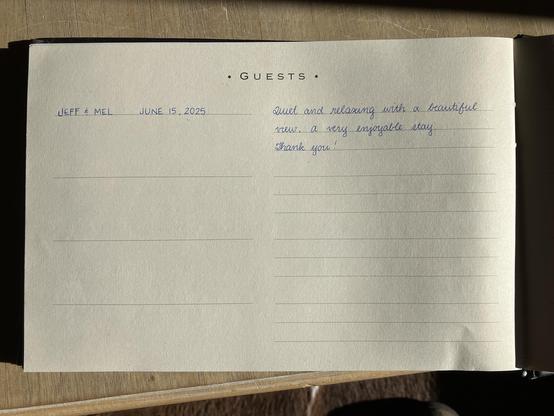 • GUESTS •
JEFF & MEL JUNE 15, 2025
Quiet and relaxing with a beautiful
view. a very enjoyable stay
Thank you!